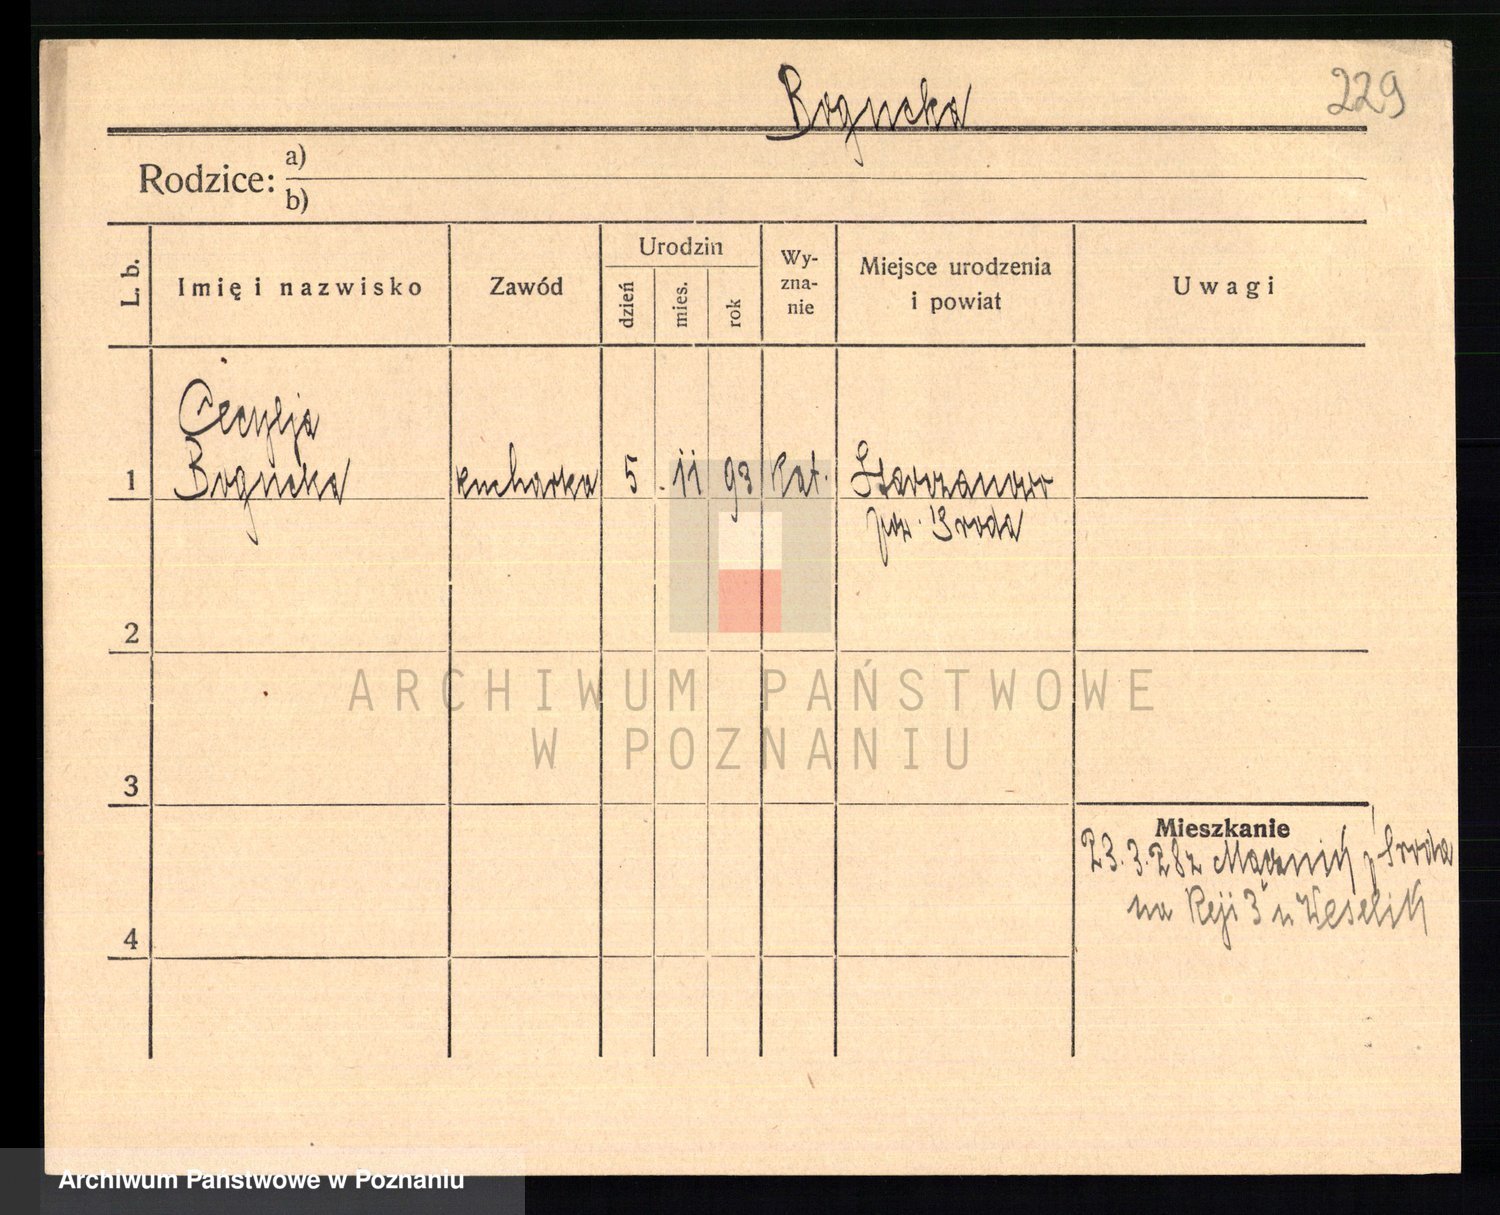 Bogucka
229
Rodzice: a)
b)
L. b.
Imię i nazwisko
Zawód
Urodzin
dzień
mies.
rok
Wy-
zna-
nie
Miejsce urodzenia
i powiat
Uwagi
Cecylja
1 Bogucka kucharka 5 . 11 93 kat. Starzanowo
pow. Środa
2
3
Mieszkanie
23.3.28 z Mącznik p. Środa
4 na Reji 3 u Weselik
ARCHIWUM PAŃSTWOWE
W POZNANIU
Archiwum Państwowe w Poznaniu